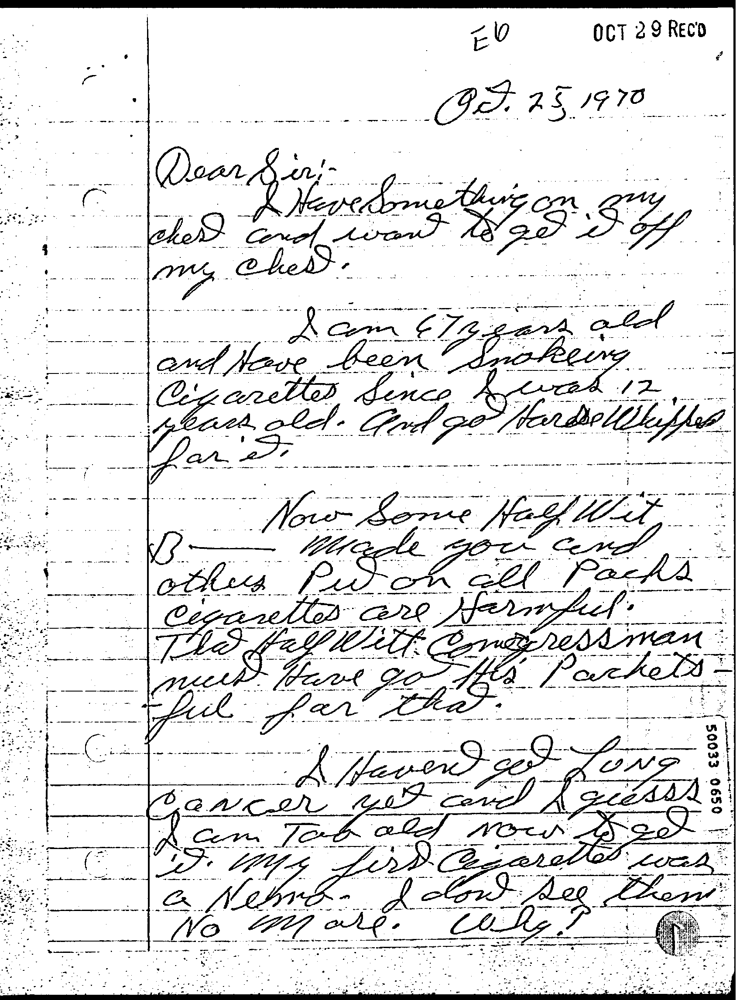 E6 OCT 29 REC'D
Oct. 25, 1970
Dear Sir:-
I Have Something on my
chest and want to get it off
my chest.
I am 67 years old
and Have been Smokeing
Cigarettes Since I was 12
years old. And got Horse Whipped
for it.
Now Some Half Wit
B—— made you and
others Put on all Packs
cigarettes are Harmful.
That Half Witt Congressman
must Have got His Pockets-
-ful for that.
I Havent got Lung
Cancer yet and I guess
I am Too old now to get
it. My first Cigarettes was
a Nemo. I dont see them
No More. Why?
50033 0650